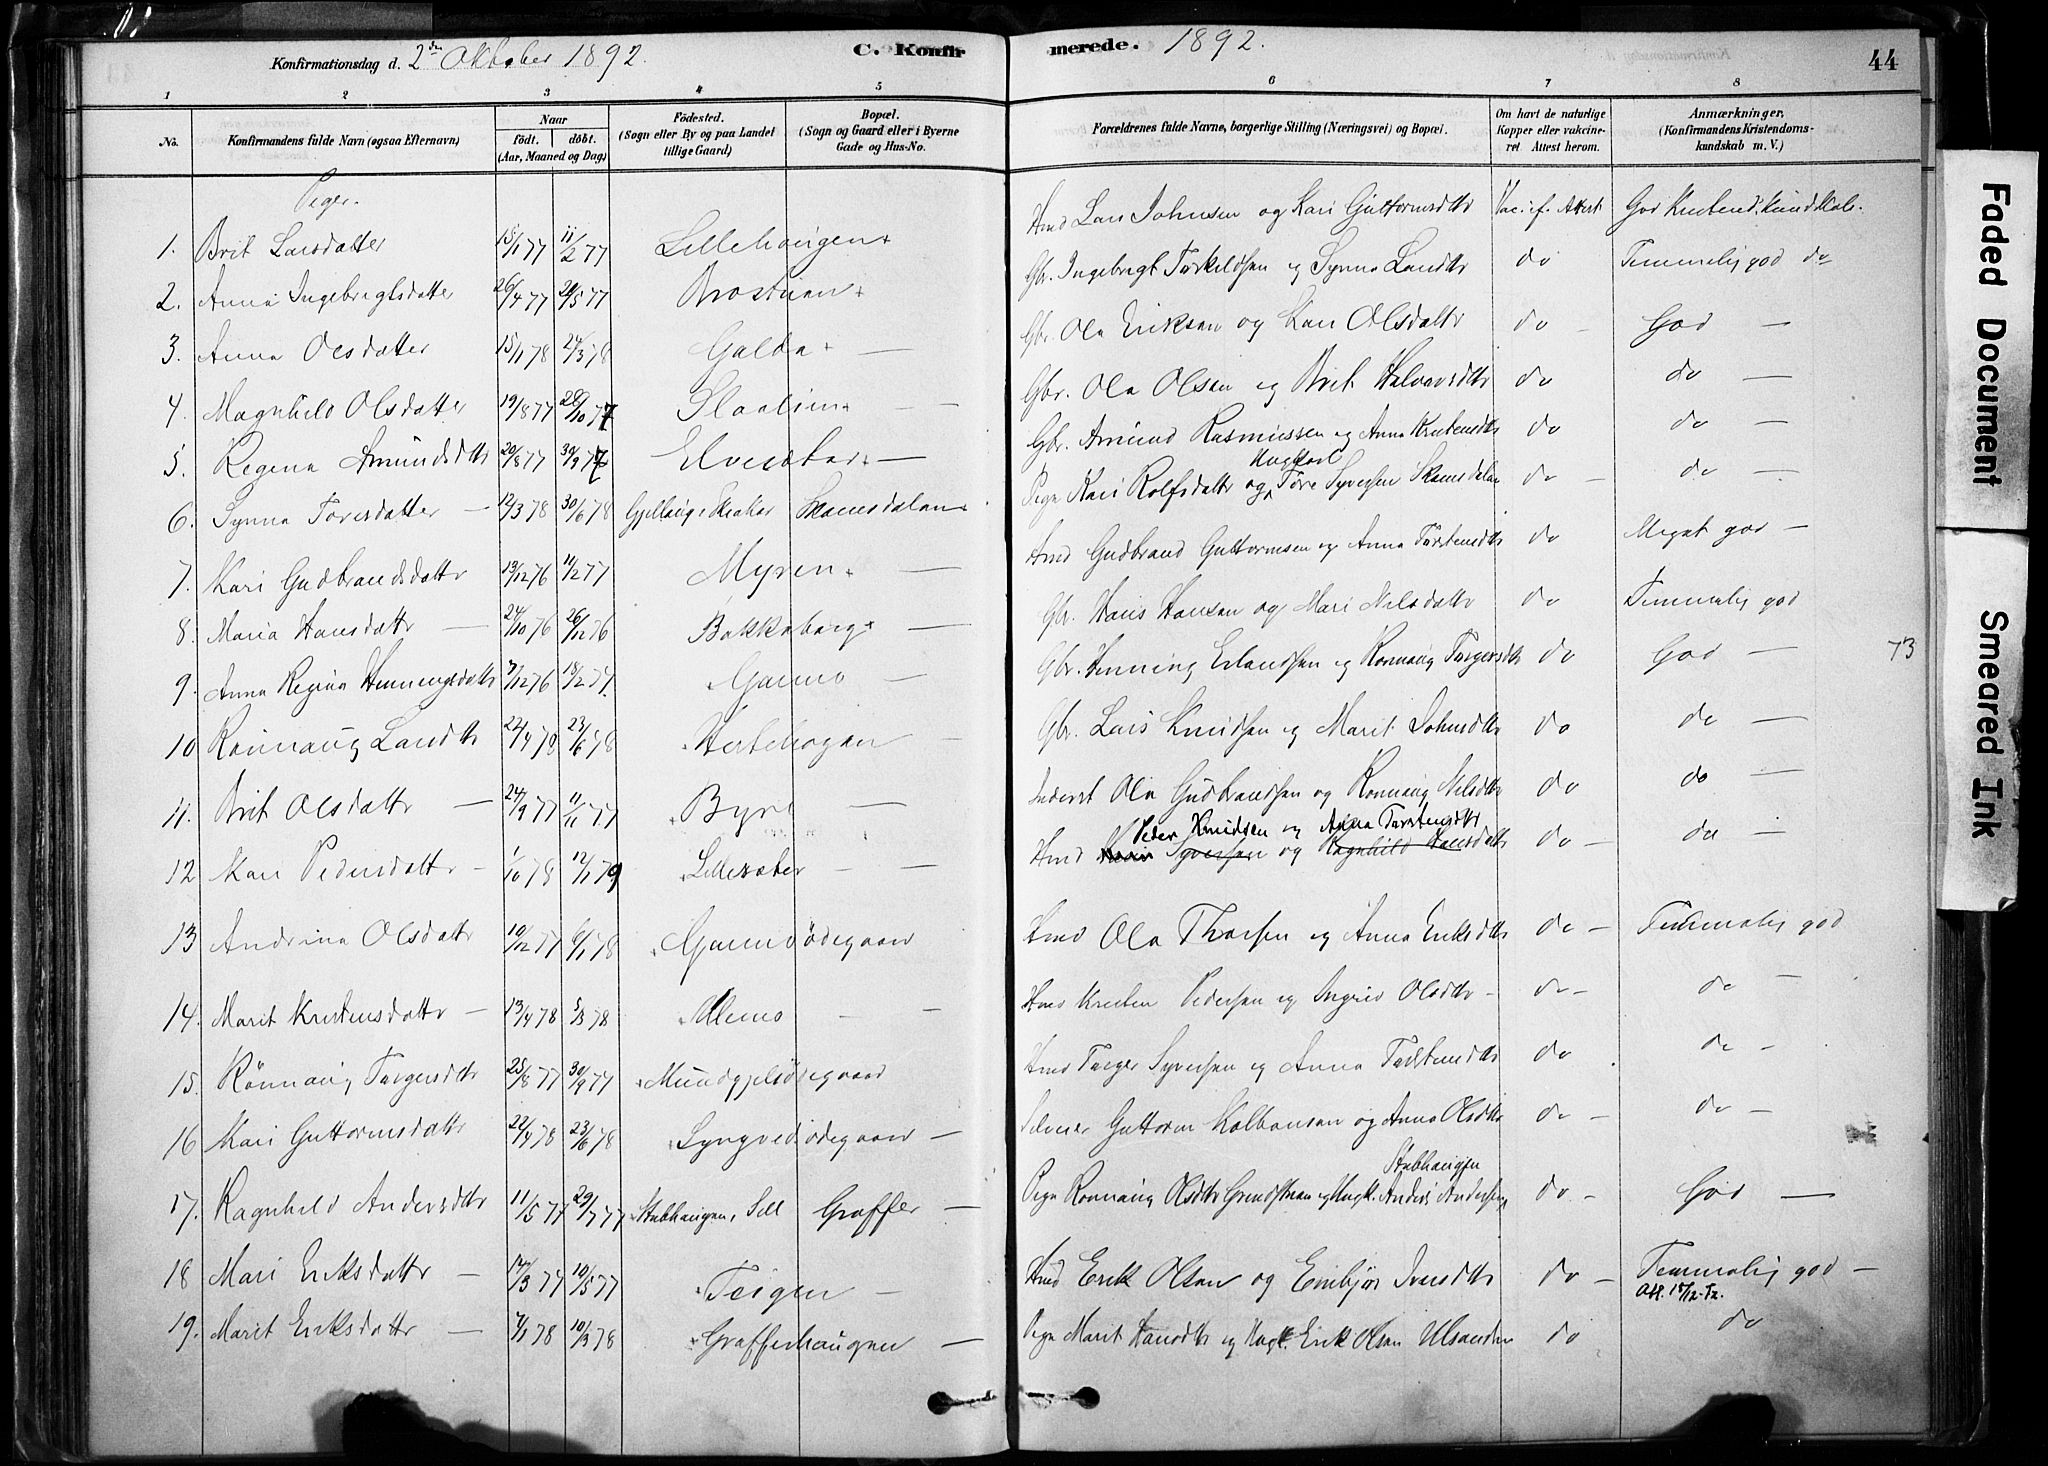 Konfirmationsdag d. 2den Oktober 1892. C. Konfir merede. 1892. 44
1 2 3 4 5 6 7 8
No. Konfirmandens fulde Navn (ogsaa Efternavn) Naar født. døbt. (Aar, Maaned og Dag) Fødested. (Sogn eller By og paa Landet tillige Gaard) Bopæl. (Sogn og Gaard eller i Byerne Gade og Hus-No. Forældrenes fulde Navne, borgerlige Stilling (Næringsvei) og Bopæl. Om havt de naturlige Kopper eller vakcineret. Attest herom. Anmærkninger. (Konfirmandens Kristendomskundskab m. V.)
Piger.
1. Brit Larsdatter 15/1 77 11/2 77 Lillehaugen Hmd Lars Johnsen og Kari Guttormsdtr Vac. if. Attest God Kristend. kundskab.
2. Anna Ingebrigtsdatter 26/4 77 21/5 77 Brostuen Gbr. Ingebrigt Torkeldsen og Synna Larsdtr do Temmelig god do
3. Anna Olsdatter 15/1 78 24/3 78 Galda — Gbr. Ola Eriksen og Kari Olsdattr do — God —
4. Magnhild Olsdatter 19/8 77 28/10 77 Slaalien — Gbr. Ola Olsen og Brit Halvorsdtr do do —
5. Regina Amundsdtr 20/8 77 30/9 77 Elvesæter — Gbr. Amund Rasmussen og Anna Kristensdtr do do —
6. Synna Toresdatter — 12/3 78 30/6 78 Skiaker Skamsdalen Pige Kari Rolfsdattr og Ungkarl Tore Syversen Skamsdalen do — do —
7. Kari Gudbrandsdattr 13/12 76 11/2 77 Myren — Hmd Gudbrand Guttormsen og Anna Torstensdtr do Meget god —
8. Maria Hansdattr — 24/10 76 26/12 76 Bakkeberg — Gbr. Hans Hansen og Mari Nilsdattr do Temmelig god
9. Anna Regina Henningsdattr 7/12 76 18/2 77. Garmo — Gbr. Henning Erlandsen og Ronnaug Torgersdtr do God — 73
10 Rønnaug Larsdtr 22/4 78 23/6 78 Hestehagen — Gbr. Lars Knudsen og Marit Johnsdtr do do —
11. Brit Olsdattr — 24/9 77 11/11 77 Byre — Inderst Ola Gudbrandsen og Ronnaug Nilsdtr do do —
12 Kari Pedersdattr — 1/10 78 12/1 79 Lillesæter — — Hmd Peder Knudsen og Anna Torstensdtr Syversen og Ragnhild Hansdattr do — do —
13 Andrina Olsdattr 10/12 77 6/1 78 Garmoødegaard Hmd Ola Thorsen og Anna Eriksdtr do — Temmelig god
14. Marit Kristensdattr — 13/4 78 78 Alemo — — Hmd Kristen Pedersen og Ingrid Olsdtr — do — do —
15. Rønnaug Torgersdtr 25/8 77 30/9 77 Mundgjelsødegaard Hmd Torger Syversen og Anna Torstensdtr do do —
16 Kari Guttormsdattr 22/4 78 23/6 78 Syngvediødegaard — Selveier Guttorm Kolbensen og Anna Olsdtr do — do —
17. Ragnhild Andersdtr 11/5 77 29/7 77 Stubhaugen, Sell Graffer — Pige Ronnaug Olsdtr Grindstuen og Ungk. Anders Andersen Stubhaugen do — God —
18 Mari Eriksdattr — 14/3 77 10/5 77 Teigen — Hmd Erik Olsen og Embjør Iversdtr do — Temmelig god —
Att. 15/12-52.
19. Marit Eriksdattr — 7/1 78 10/3 78 Grafferhaugen — Pige Marit Hansdtr og Ungk. Erik Olsen Ulsanden do do
Faded Document
Smeared Ink